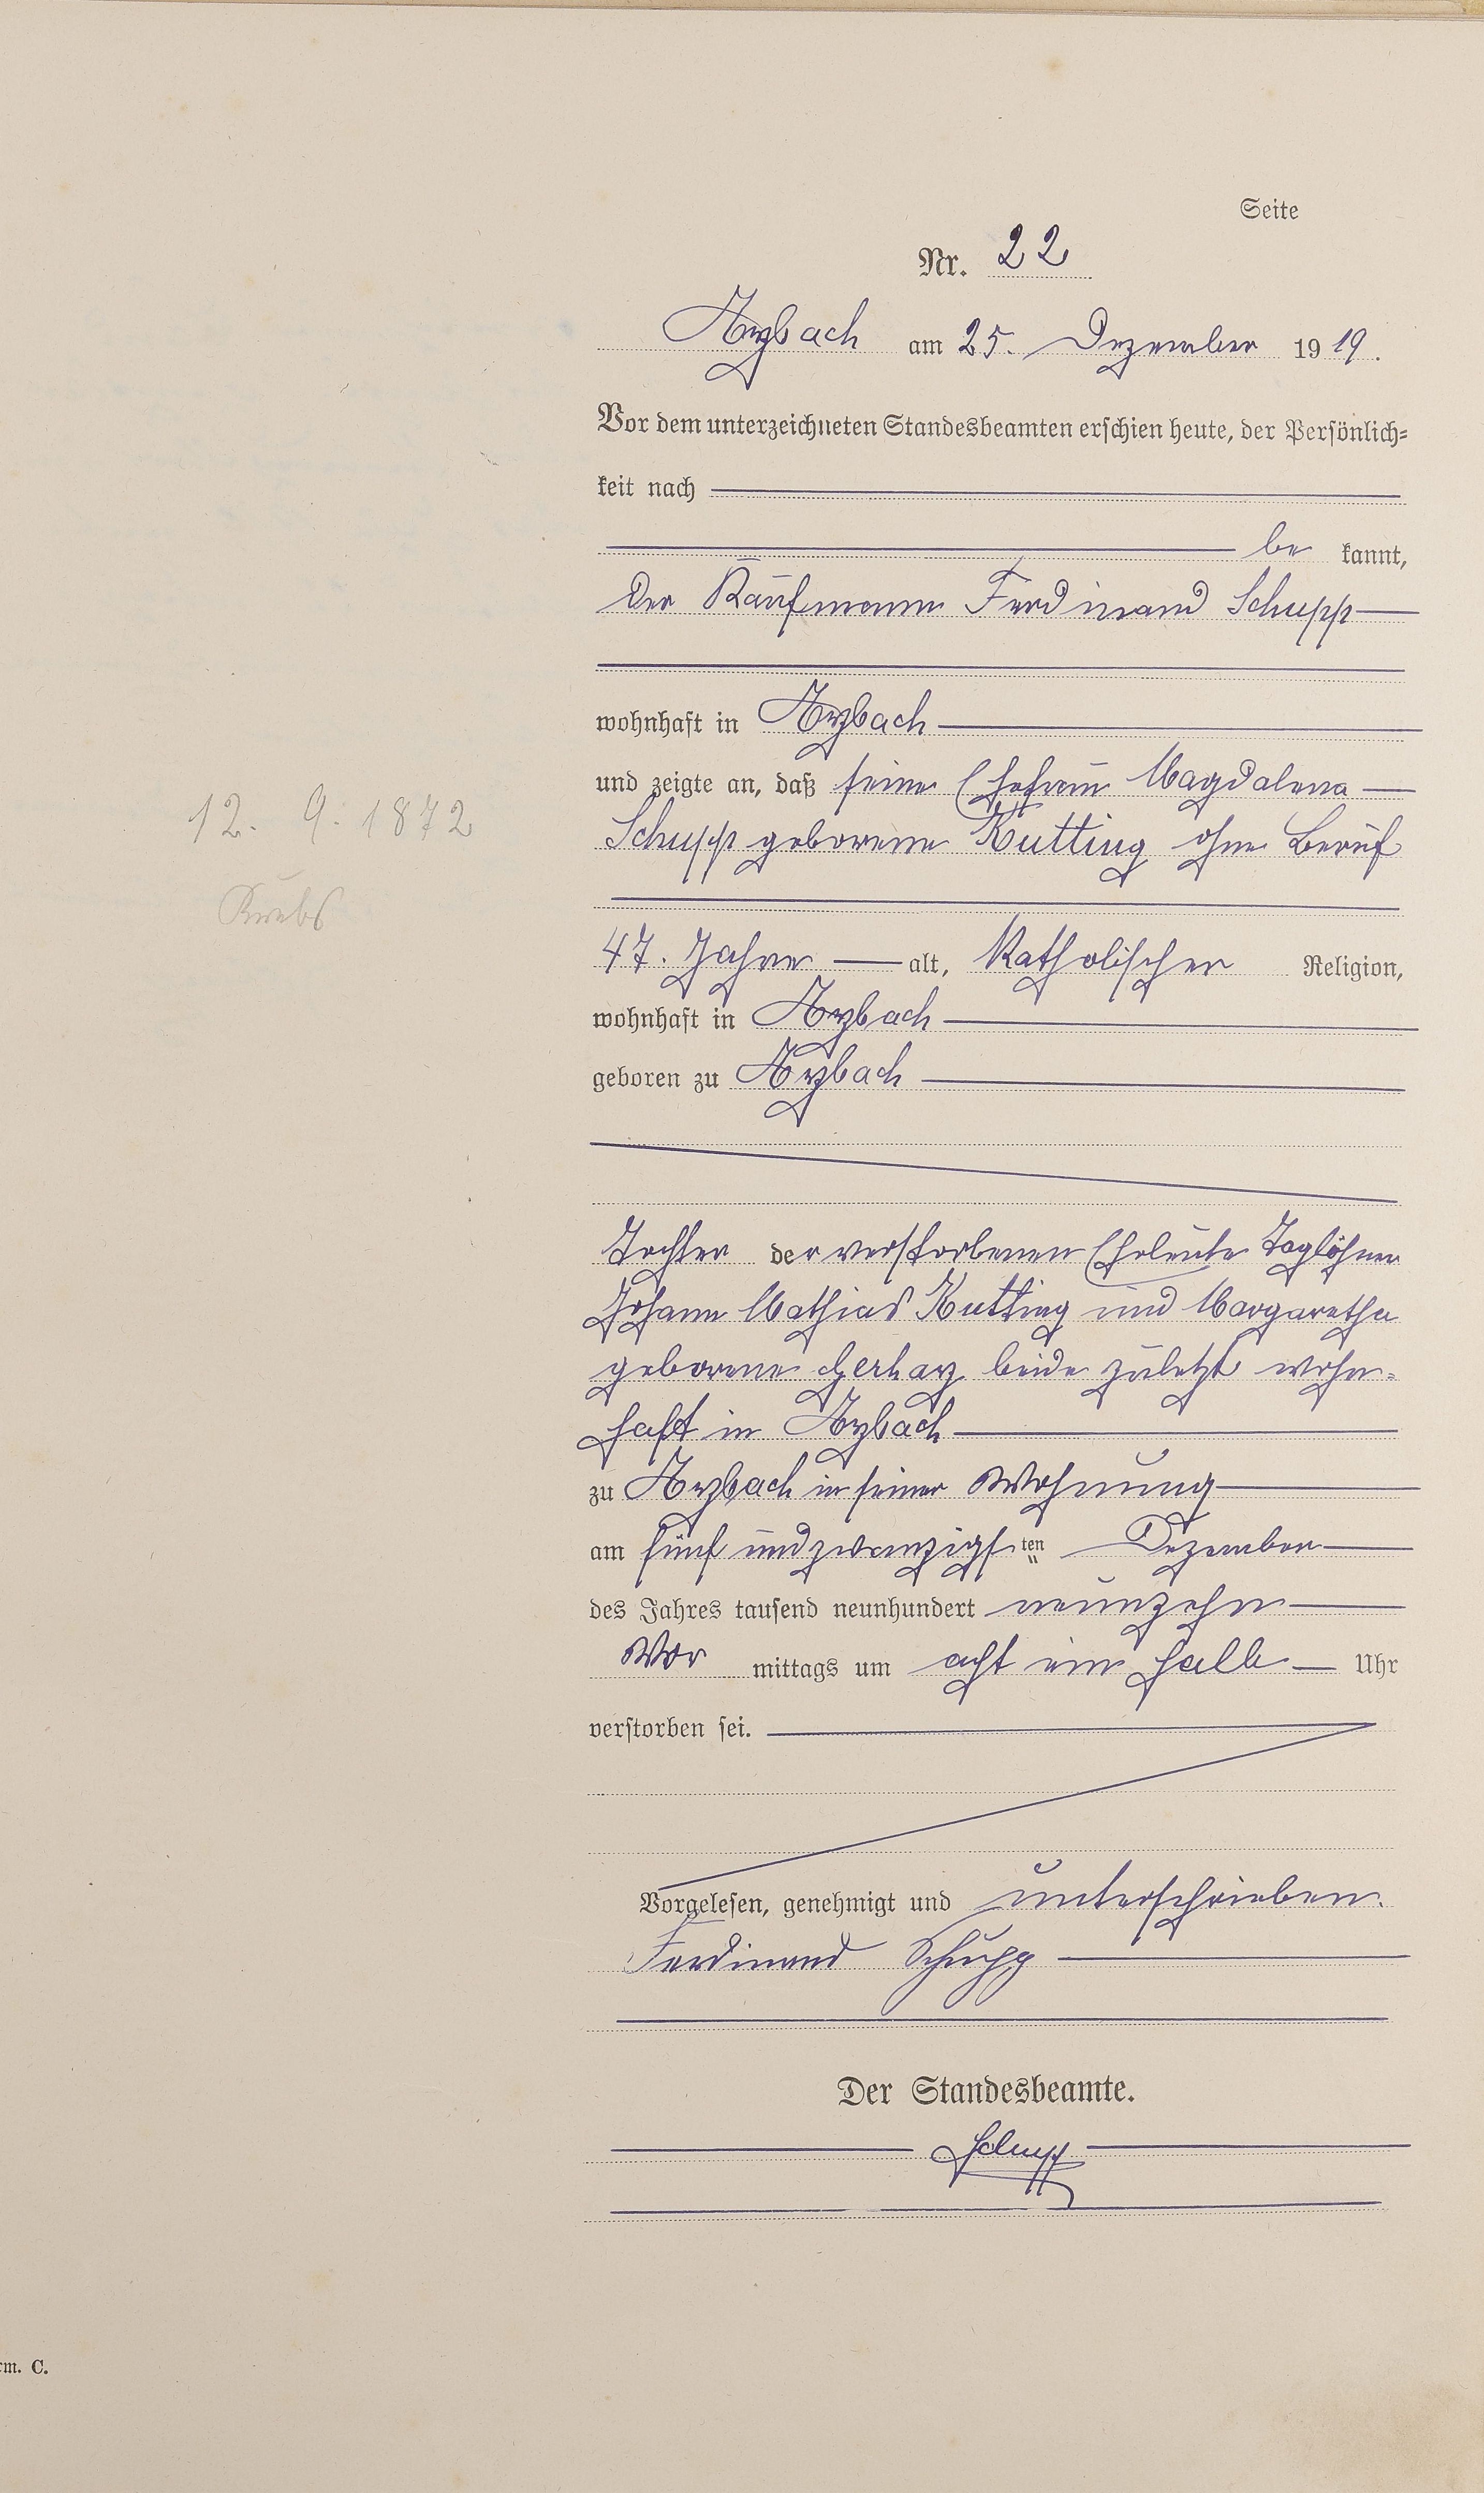 Seite
Nr. 22
Arzbach am 25. Dezember 1919.
Vor dem unterzeichneten Standesbeamten erschien heute, der Persönlich-
keit nach
be kannt,
der Kaufmann Ferdinand Schupp
wohnhaft in Arzbach
und zeigte an, daß seine Ehefrau Magdalena
12. 9. 1872
Schupp geborene Kutting ohne Beruf
Krebs
47. Jahre alt, Katholischer Religion,
wohnhaft in Arzbach
geboren zu Arzbach
Tochter der verstorbenen Eheleute Taglöhner
Johann Mathias Kutting und Margaretha
geborene Gerharz beide zuletzt wohn-
haft in Arzbach
zu Arzbach in seiner Wohnung
am fünfundzwanzigsten Dezember
des Jahres tausend neunhundert neunzehn
Vor mittags um acht ein halb Uhr
verstorben sei.
Vorgelesen, genehmigt und unterschrieben.
Ferdinand Schupp
Der Standesbeamte.
Schupp
rm. C.